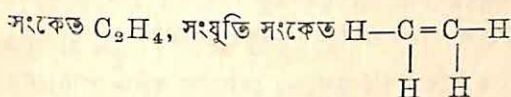 সংকেত C₂H₄, সংযুতি সংকেত H—C=C—H
H H